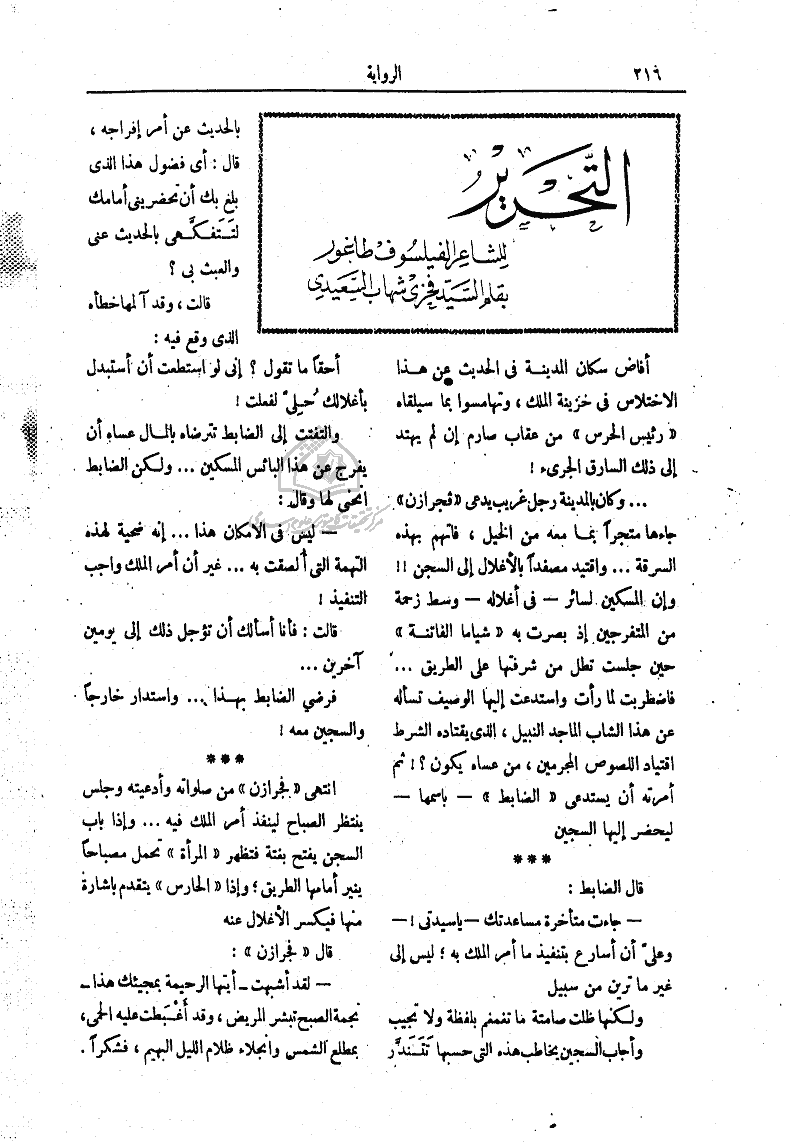 ٣١٦
الرواية
التَّحرير
للشاعر الفيلسوف طاغور
بقلم السَّيِّد فخري شهاب السَّعيدي
أفاض سكان المدينة فى الحديث عن هذا
الاختلاس فى خزينة الملك ، وتهامسوا بما سيلقاه
« رئيس الحرس » من عقاب صارم إن لم يهتد
إلى ذلك السارق الجرىء !
... وكان بالمدينة رجل غريب يدعى « فجرازن »
جاءها متجراً بما معه من الخيل ، فاتهم بهذه
السرقة ... واقتيد مصفداً بالأغلال إلى السجن !!
وإن المسكين لسائر — فى أغلاله — وسط زحمة
من المتفرجين إذ بصرت به « شياما الفاتنة »
حين جلست تطل من شرفتها على الطريق ...
فاضطربت لما رأت واستدعت إليها الوصيف تسأله
عن هذا الشاب الماجد النبيل ، الذى يقتاده الشرط
اقتياد اللصوص المجرمين ، من عساه يكون ؟ ! ثم
أمرته أن يستدعى « الضابط » — باسمها —
ليحضر إليها السجين
***
قال الضابط :
— جاءت متأخرة مساعدتك — ياسيدتى ! —
وعلىّ أن أسارع بتنفيذ ما أمر الملك به ؛ ليس إلى
غير ما ترين من سبيل
ولكنها ظلت صامتة ما تغمغم بلفظة ولا تجيب
وأجاب السجين يخاطب هذه التى حسبها تَتَندَّر
بالحديث عن أمر إفراجه ،
قال : أى فضول هذا الذى
بلغ بك أن تحضرينى أمامك
لتَتَفكَّهى بالحديث عنى
والعبث بى ؟
قالت ، وقد آلمها خطأه
الذى وقع فيه :
أحقاً ما تقول ؟ إنى لو استطعت أن أستبدل
بأغلالك حُليىّ لفعلت !
والتفتت إلى الضابط تترضاه بالمال عساه أن
يفرج عن هذا البائس المسكين ... ولكن الضابط
انحنى لها وقال :
— ليس فى الامكان هذا ... إنه ضحية لهذه
التهمة التى أُلصقت به ... غير أن أمر الملك واجب
التنفيذ !
قالت : فأنا أسألك أن تؤجل ذلك إلى يومين
آخرين ...
فرضي الضابط بهذا ... واستدار خارجاً
والسجين معه !
***
انتهى « فجرازن » من صلواته وأدعيته وجلس
ينتظر الصباح لينفذ أمر الملك فيه ... وإذا باب
السجن يفتح بغتة فتظهر « المرأة » تحمل مصباحاً
ينير أمامها الطريق ؛ وإذا « الحارس » يتقدم باشارة
منها فيكسر الأغلال عنه
قال « فجرازن » :
— لقد أشبهت — أيتها الرحيمة بمجيئك هذا —
نجمة الصبح تبشر المريض ، وقد أغْبَطت عليه الحمى ،
بمطلع الشمس وانجلاء ظلام الليل البهيم ، فشكراً .